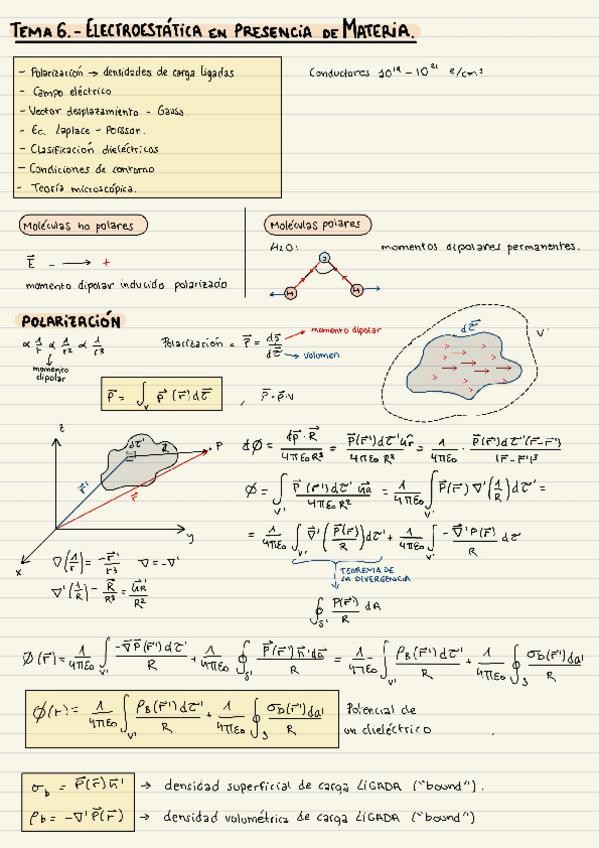 TEMA 6.- ELECTROESTÁTICA EN PRESENCIA DE MATERIA.
- Polarización → densidades de carga ligadas
Conductores 10¹⁹ - 10²¹ e/cm³
- Campo eléctrico
- Vector desplazamiento - Gauss.
- Ec. Laplace - Poisson.
- Clasificación dieléctricos
- Condiciones de contorno
- Teoría microscópica.
Moléculas no polares
E⃗ - → +
momento dipolar inducido polarizado
Moléculas polares
H₂O:
momentos dipolares permanentes.
H H
POLARIZACIÓN
∝ 1/r ∝ 1/r2 ∝ 1/r3
momento dipolar
Polarización = P⃗ = dp⃗/dτ⃗ → momento dipolar
→ volumen
dτ⃗ V'
P⃗ = ∫v p⃗(r⃗)dτ⃗ , P⃗·p·v
z dτ' R P
r⃗' r⃗
x y
dΦ = dp⃗·R⃗/4πε₀R³ = P⃗(r⃗')dτ'ûr/4πε₀R² = 1/4πε₀ · P⃗(r⃗)dτ'(r⃗-r⃗')/|r⃗-r⃗'|³
Φ = ∫v' P⃗(r⃗')dτ' ûR/4πε₀R² = 1/4πε₀ ∫v' P(r⃗) ∇'(1/R)dτ' =
= 1/4πε₀ ∫v' ∇⃗'(P⃗(r⃗)/R)dτ' + 1/4πε₀ ∫v' -∇⃗'P(r⃗)/R dτ
∇(1/r) = -r⃗'/r³ ∇ = -∇'
∇'(1/R) - R⃗/R³ = ûR/R²
TEOREMA DE
LA DIVERGENCIA
∮s' P(r⃗')/R dA
Φ(r⃗) = 1/4πε₀ ∫v' -∇⃗P⃗(r⃗')dτ'/R + 1/4πε₀ ∮s' P⃗(r⃗')n⃗'da/R = 1/4πε₀ ∫v' ρB(r⃗')dτ'/R + 1/4πε₀ ∮s σb(r⃗')da'/R
Φ(r) = 1/4πε₀ ∫v' ρB(r⃗')dτ'/R + 1/4πε₀ ∮s σb(r⃗')da'/R
Potencial de
un dieléctrico
σb = P⃗(r⃗)n⃗' → densidad superficial de carga LIGADA ("bound").
ρb = -∇'P⃗(r⃗) → densidad volumétrica de carga LIGADA ("bound")